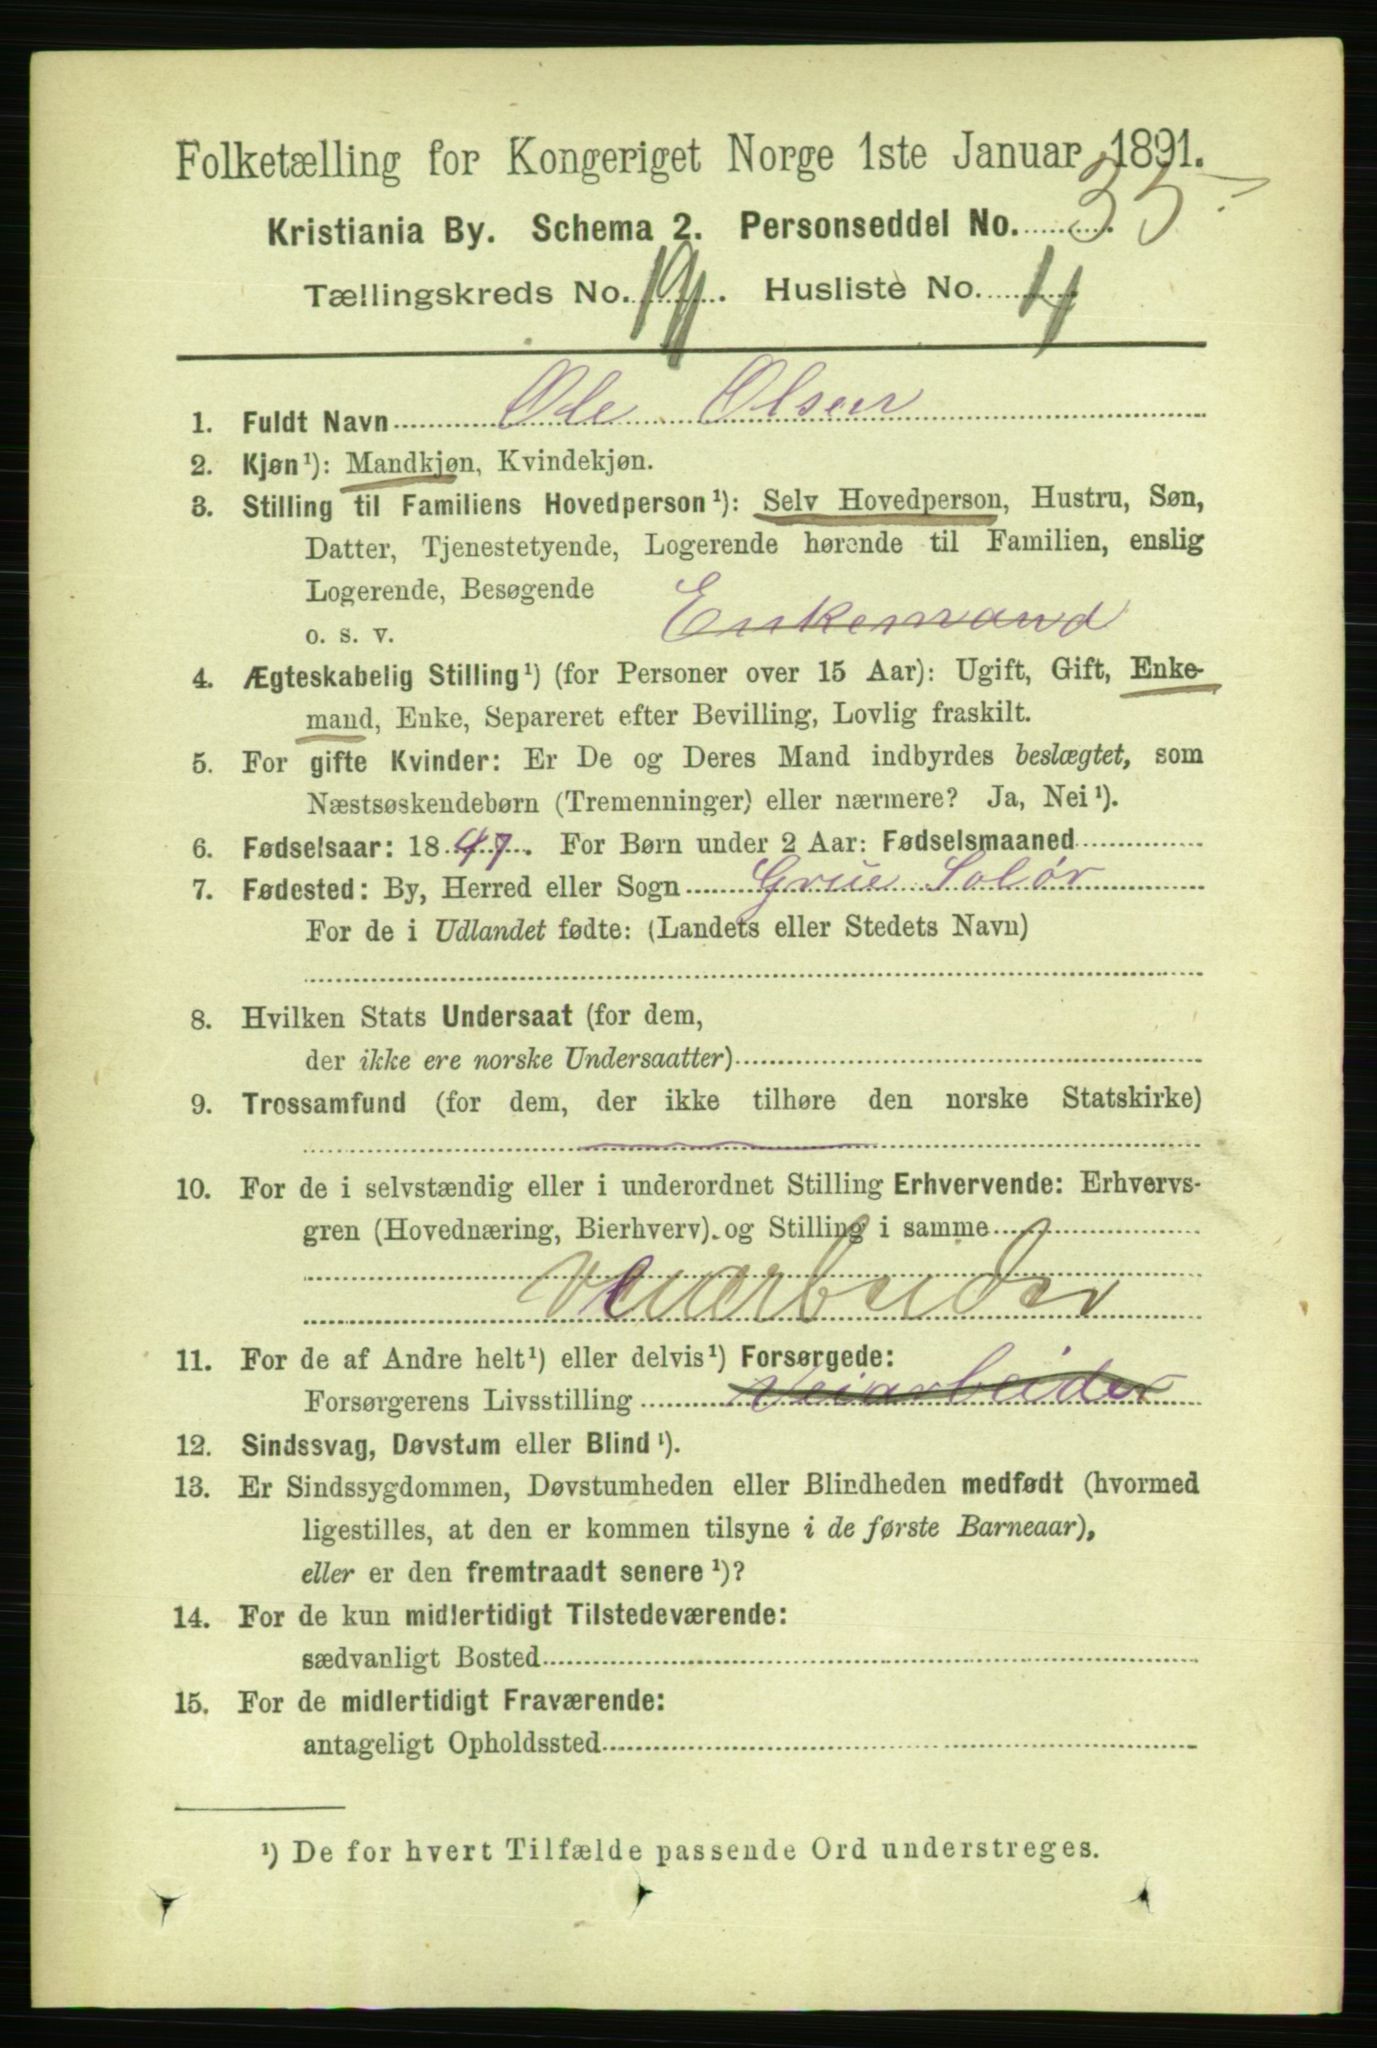 Folketælling for Kongeriget Norge 1ste Januar 1891.
Kristiania By. Schema 2. Personseddel No. 35.
Tællingskreds No. 19. Husliste No. 4
1. Fuldt Navn Ole Olsen
2. Kjøn¹): Mandkjøn, Kvindekjøn.
3. Stilling til Familiens Hovedperson¹): Selv Hovedperson, Hustru, Søn,
Datter, Tjenestetyende, Logerende hørende til Familien, enslig
Logerende, Besøgende
o. s. v. Enkemand
4. Ægteskabelig Stilling¹) (for Personer over 15 Aar): Ugift, Gift, Enke-
mand, Enke, Separeret efter Bevilling, Lovlig fraskilt.
5. For gifte Kvinder: Er De og Deres Mand indbyrdes beslægtet, som
Næstsøskendebørn (Tremenninger) eller nærmere? Ja, Nei¹).
6. Fødselsaar: 1847. For Børn under 2 Aar: Fødselsmaaned
7. Fødested: By, Herred eller Sogn Grue Solør
For de i Udlandet fødte: (Landets eller Stedets Navn)
8. Hvilken Stats Undersaat (for dem,
der ikke ere norske Undersaatter)
9. Trossamfund (for dem, der ikke tilhøre den norske Statskirke)
10. For de i selvstændig eller i underordnet Stilling Erhvervende: Erhvervs-
gren (Hovednæring, Bierhverv) og Stilling i samme
Veiarbeider
11. For de af Andre helt¹) eller delvis¹) Forsørgede:
Forsørgerens Livsstilling Veiarbeider
12. Sindssvag, Døvstum eller Blind¹).
13. Er Sindssygdommen, Døvstumheden eller Blindheden medfødt (hvormed
ligestilles, at den er kommen tilsyne i de første Barneaar),
eller er den fremtraadt senere¹)?
14. For de kun midlertidigt Tilstedeværende:
sædvanligt Bosted
15. For de midlertidigt Fraværende:
antageligt Opholdssted
¹) De for hvert Tilfælde passende Ord understreges.